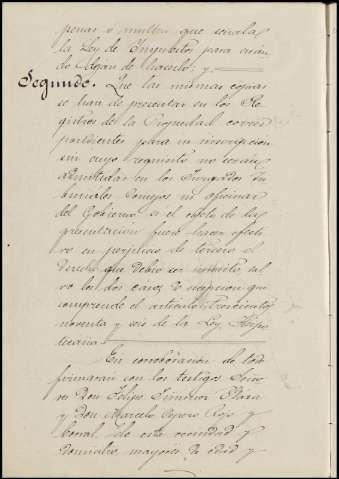 penas ó multas que señala
la Ley de Impuestos para cuan
do dejan de hacerlo; y
Segundo. Que las mismas copias
se han de presentar en los Re
gistros de la Propiedad corres
pondientes para su inscripcion
sin cuyo requisito no serán
admitidas en los Juzgados Tri
bunales Consejos ni oficinas
del Gobierno si el objeto de la
presentacion fuese hacer efecti
vo en perjuicio de tercero el
derecho que debió ser inscrito, sal
vo los dos casos de excepcion que
comprende el artículo trescientos
noventa y seis de la Ley Hipo
tecaria
En corroboracion de lo
firmarán con los testigos Seño
res Don Felipe
y Don Marcelo Rojo y
de esta vecindad y
mayores de edad y